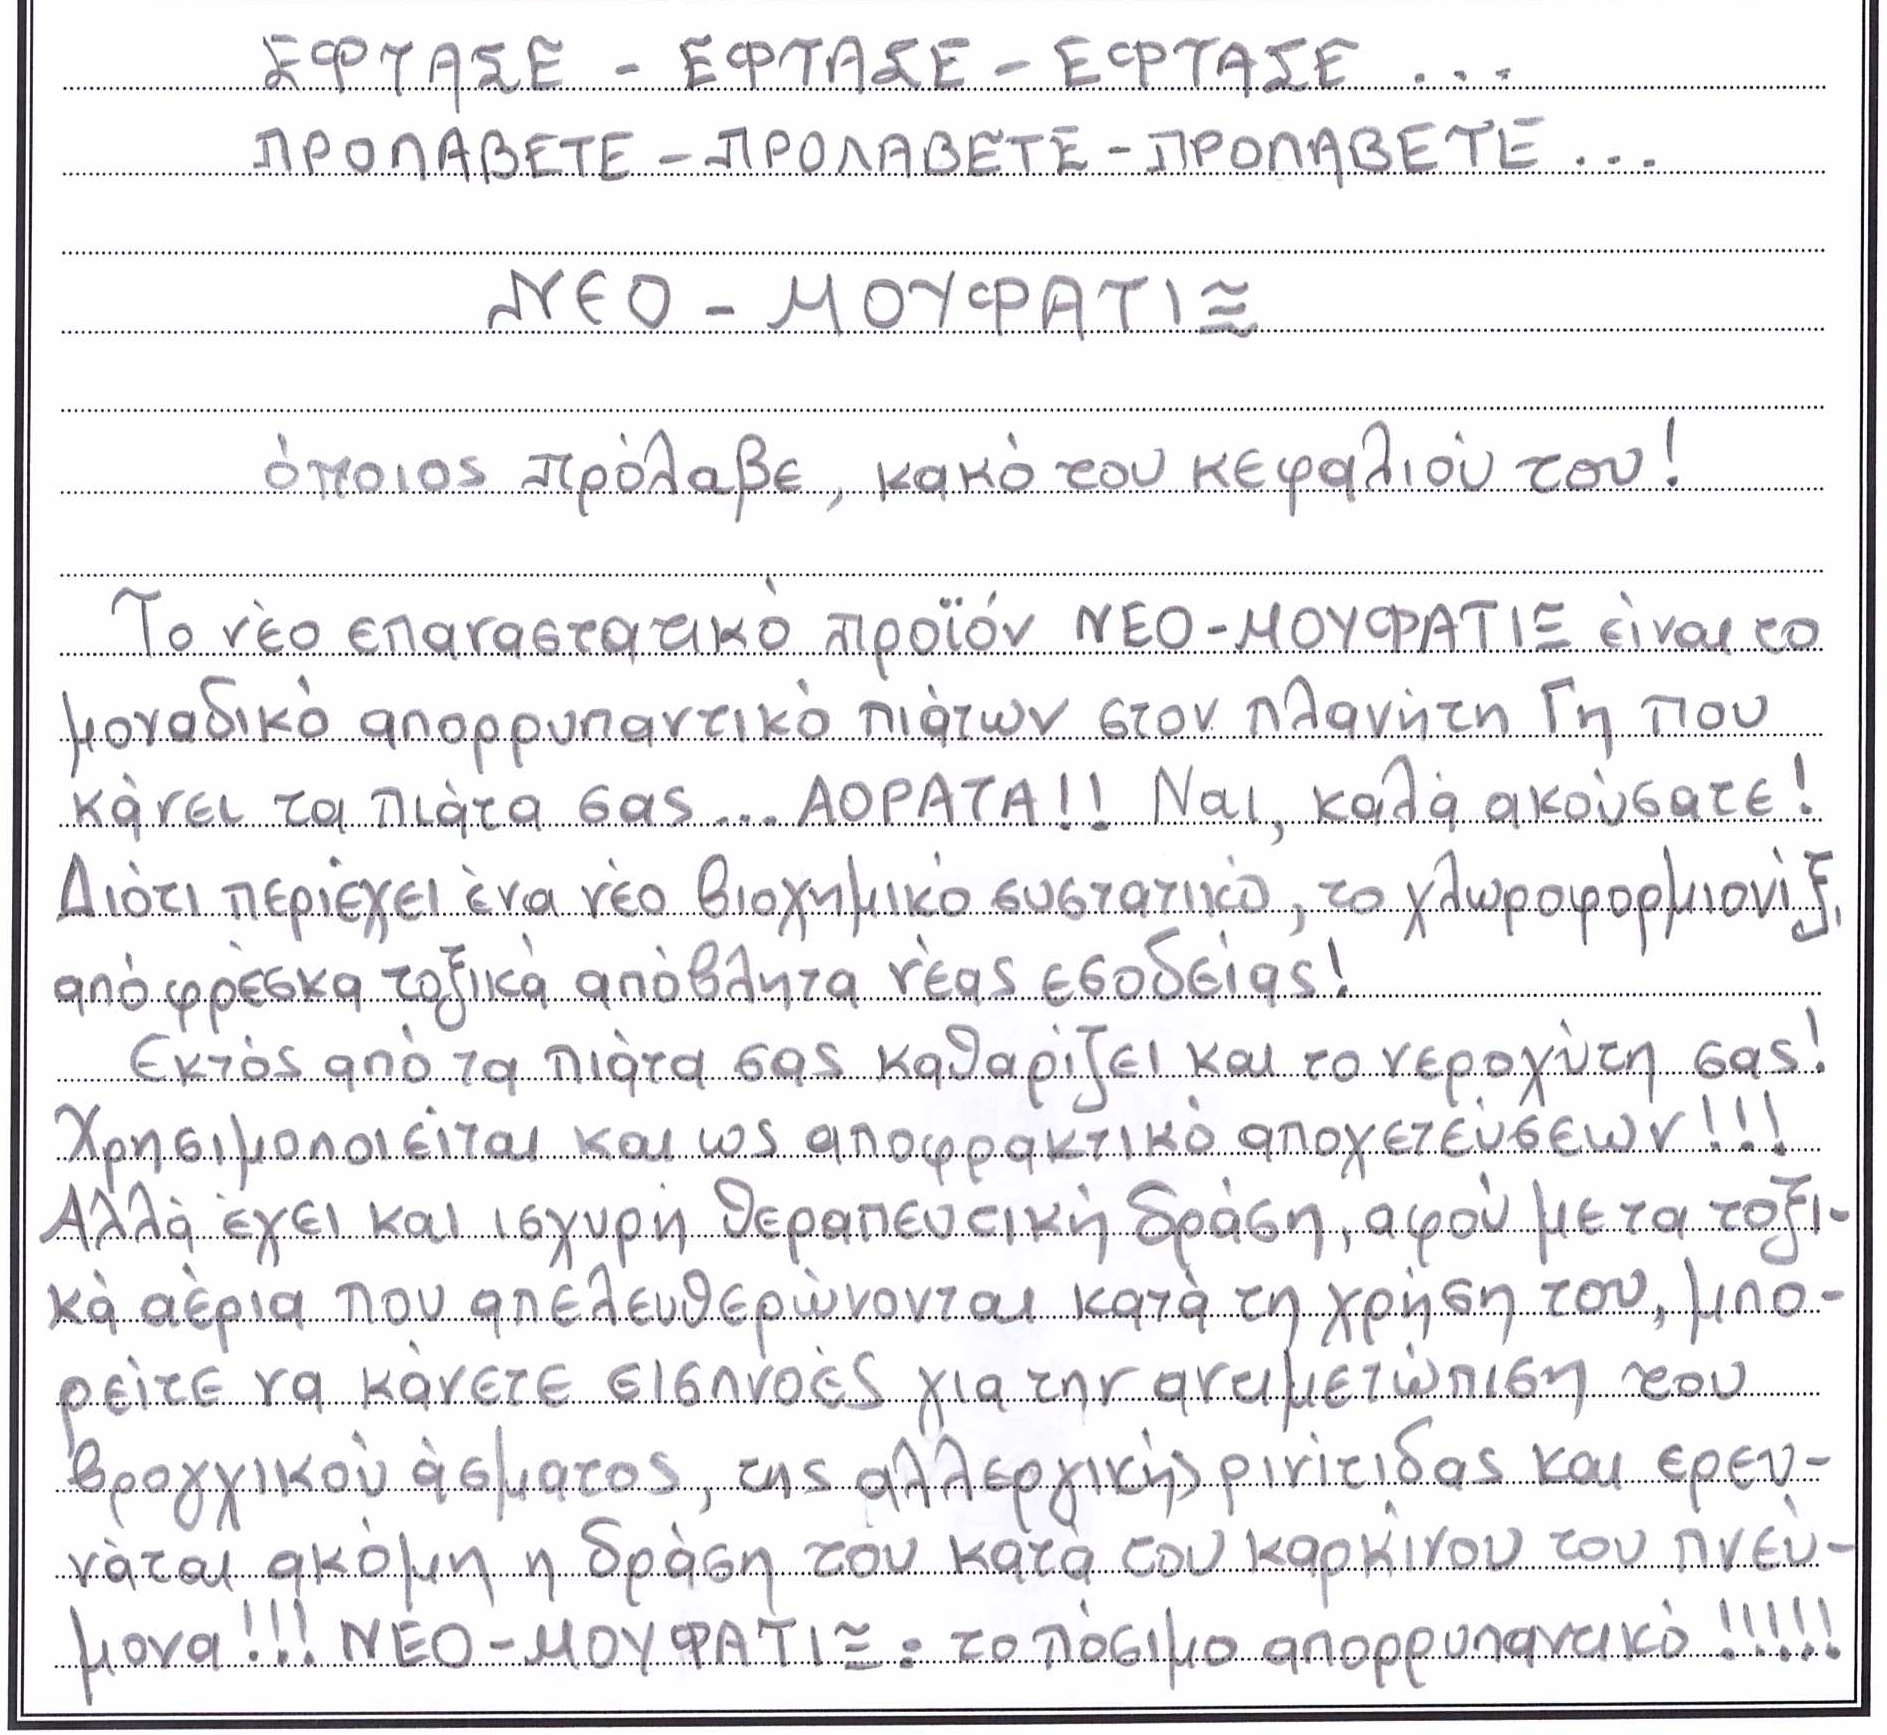 ΕΦΤΑΣΕ - ΕΦΤΑΣΕ - ΕΦΤΑΣΕ ...
ΠΡΟΛΑΒΕΤΕ - ΠΡΟΛΑΒΕΤΕ - ΠΡΟΛΑΒΕΤΕ ...
ΝΕΟ - ΜΟΥΦΑΤΙΞ
όποιος πρόλαβε, κακό του κεφαλιού του!
Το νέο επαναστατικό προϊόν ΝΕΟ-ΜΟΥΦΑΤΙΞ είναι το
μοναδικό απορρυπαντικό πιάτων στον πλανήτη Γη που
κάνει τα πιάτα σας ... ΑΟΡΑΤΑ!! Ναι, καλά ακούσατε!
Διότι περιέχει ένα νέο βιοχημικό συστατικό, το χλωροφορμιονίξ,
από φρέσκα τοξικά απόβλητα νέας εσοδείας!
Εκτός από τα πιάτα σας καθαρίζει και το νεροχύτη σας!
Χρησιμοποιείται και ως αποφρακτικό αποχετεύσεων!!!
Αλλά έχει και ισχυρή θεραπευτική δράση, αφού με τα τοξι-
κά αέρια που απελευθερώνονται κατά τη χρήση του, μπο-
ρείτε να κάνετε εισπνοές για την αντιμετώπιση του
βρογχικού άσματος, της αλλεργικής ρινίτιδας και ερευ-
νάται ακόμη η δράση του κατά του καρκίνου του πνεύ-
μονα!!! ΝΕΟ-ΜΟΥΦΑΤΙΞ: το πόσιμο απορρυπαντικό!!!!!